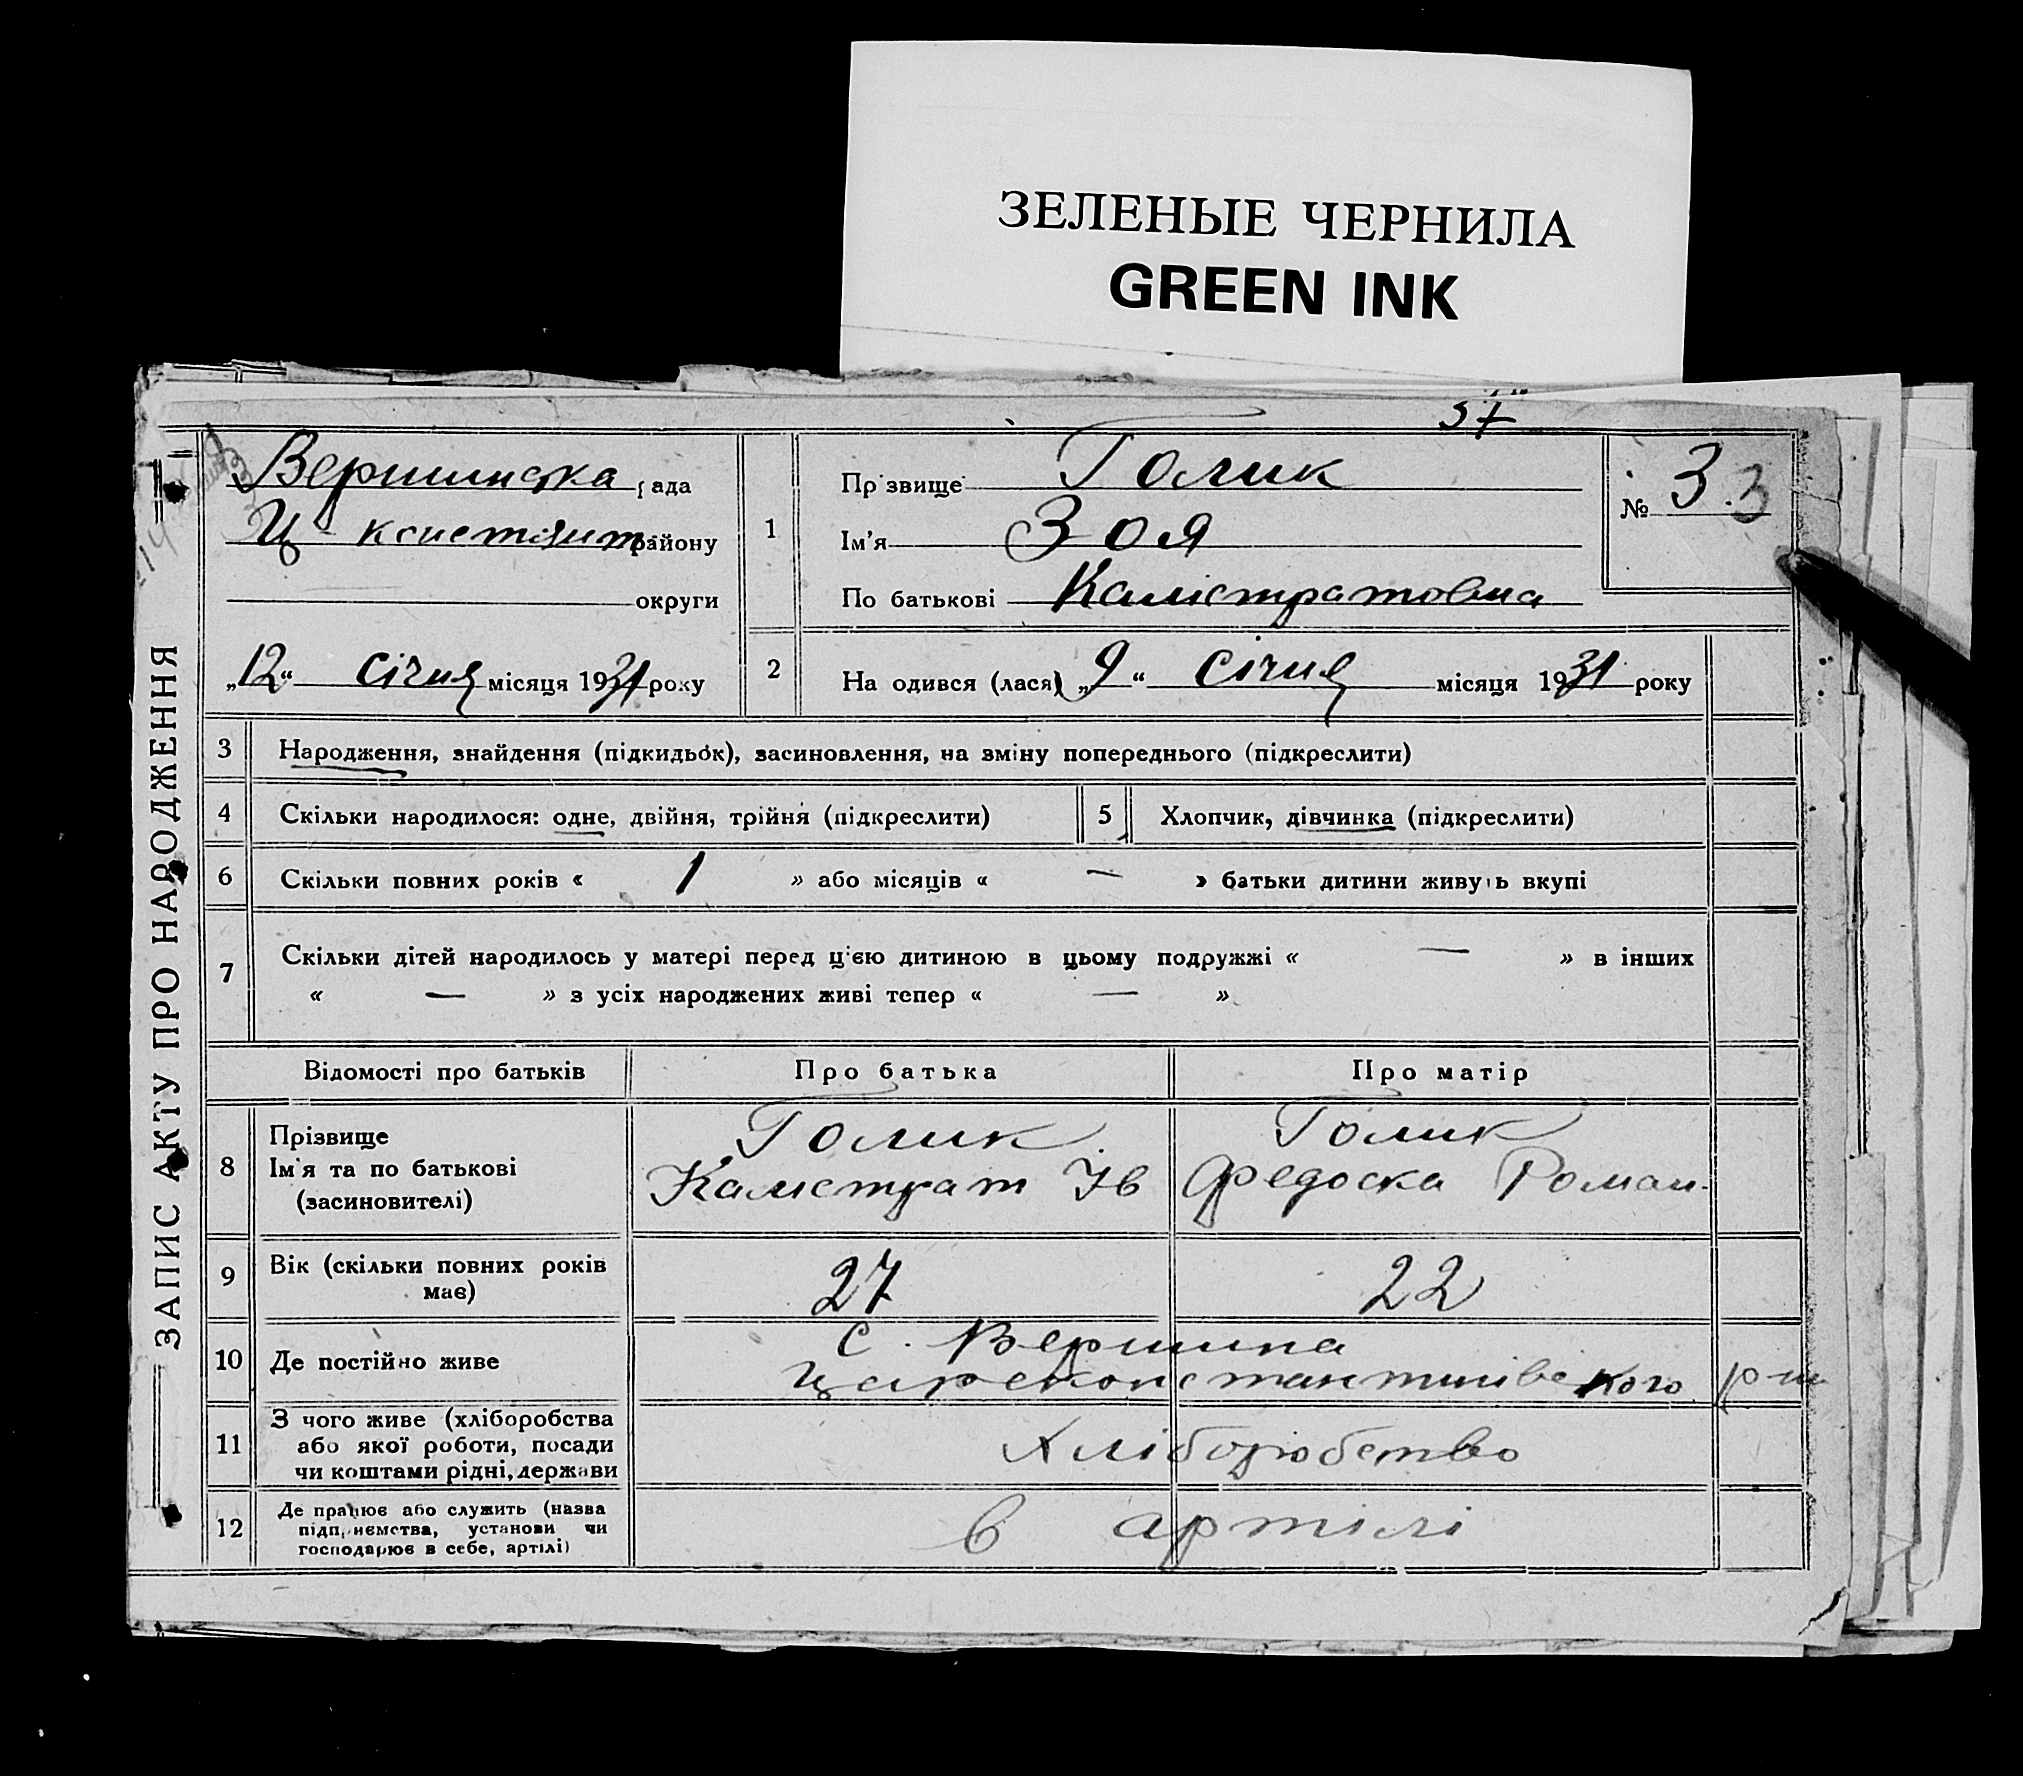 ЗЕЛЕНЫЕ ЧЕРНИЛА
GREEN INK
57
ЗАПИС АКТУ ПРО НАРОДЖЕННЯ
Вершинська рада
Ц-констянт району
округи
„12“ січня місяця 1931 року
1
Прізвище Голик
Ім’я Зоя
По батькові Калістратовна
№ 3. 3
2
На одився (лася) „9“ Січня місяця 1931 року
3 Народження, знайдення (підкидьок), засиновлення, на зміну попереднього (підкреслити)
4 Скільки народилося: одне, двійня, трійня (підкреслити)
5 Хлопчик, дівчинка (підкреслити)
6 Скільки повних років « 1 » або місяців « — » батьки дитини живуть вкупі
7 Скільки дітей народилось у матері перед цією дитиною в цьому подружжі « — » в інших
« — » з усіх народжених живі тепер « — »
Відомості про батьків
Про батька
Про матір
8 Прізвище
Ім’я та по батькові
(засиновителі)
Голик
Калистрат Ів
Голик
Федоска Роман.
9 Вік (скільки повних років
має)
27
22
10 Де постійно живе
с. Вершина
Цареконстантинівского р-ш
11 З чого живе (хліборобства
або якої роботи, посади
чи коштами рідні, держави
Хліборобство
12 Де працює або служить (назва
підприємства, установи чи
господарює в себе, артілі)
в артілі